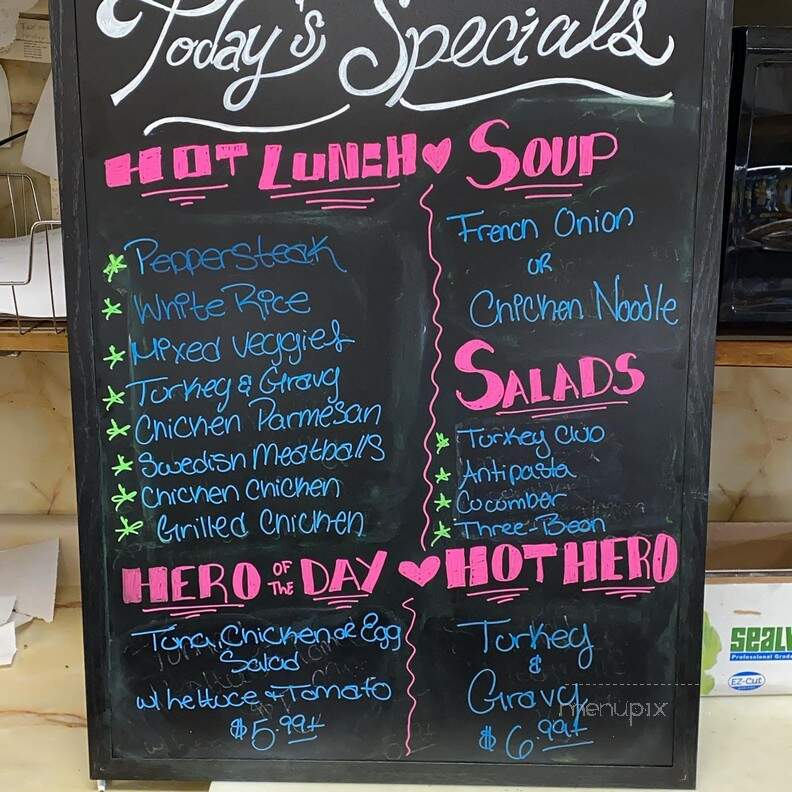 Today's Specials
HOT LUNCH
Peppersteak
White Rice
Mixed Veggies
Turkey & Gravy
Chicken Parmesan
Swedish Meatballs
Chicken Chicken
Grilled Chicken
SOUP
French Onion
OR
Chicken Noodle
SALADS
Turkey Club
Antipasta
Cucumber
Three-Bean
HERO OF THE DAY
Tuna, Chicken or Egg
Salad
w/ Lettuce & Tomato
$5.99+
HOT HERO
Turkey
&
Gravy
$6.99+
menupix
SEALW
Professional Grade
EZ-Cut